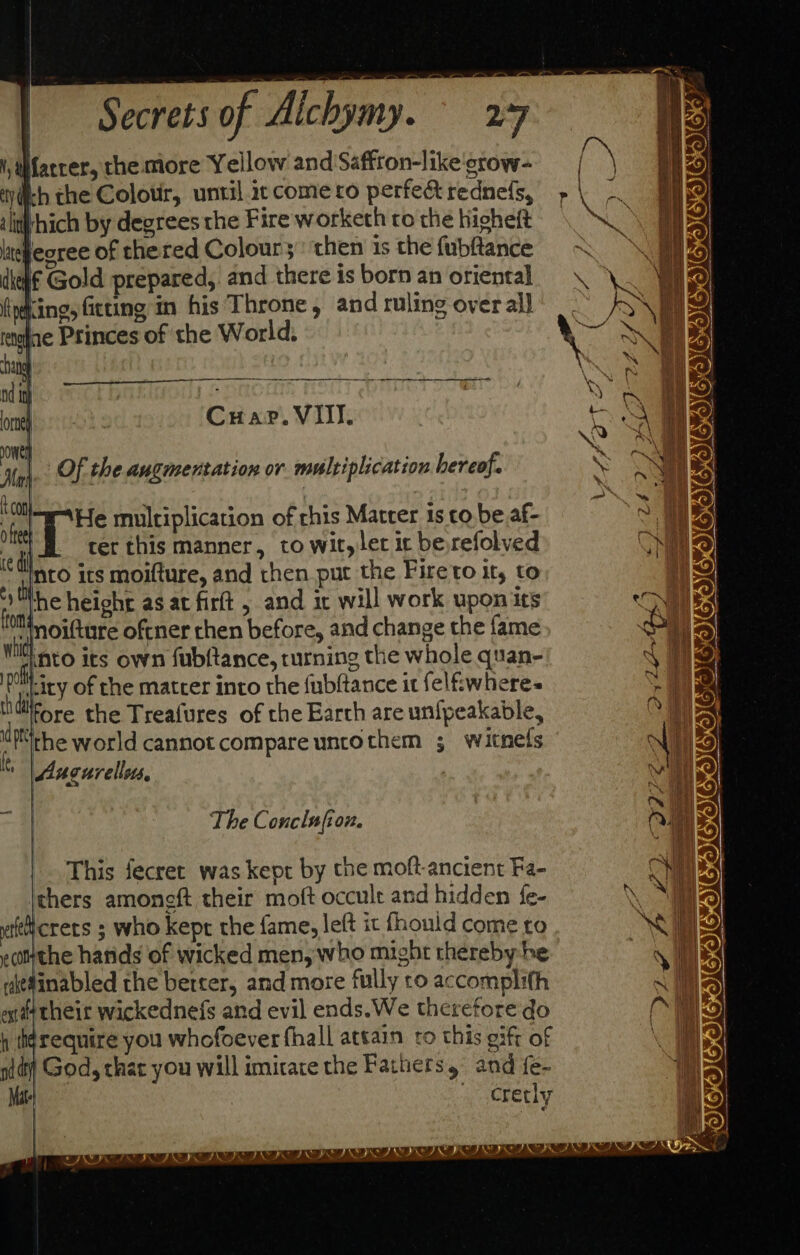 Secrets of Alchymy. 27
fatter, the more Yellow and Saffron-like grow-
eth the Colour, until it come to perfect rednefs,
which by degrees the Fire worketh to the higheft
degree of the red Colour; then is the fubftance
of Gold prepared, and there is born an oriental
King, fitting in his Throne, and ruling over all
the Princes of the World.
CHAP. VIII.
Of the augmentation or multiplication hereof.
THe multiplication of this Matter is to be af-
ter this manner, to wit, let it be refolved
into its moifture, and then put the Fire to it, to
the height as at firft, and it will work upon its
moifture oftner then before, and change the fame
into its own fubftance, turning the whole quan-
tity of the matter into the fubftance it felf: where-
fore the Treafures of the Earth are unfpeakable,
the world cannot compare unto them ; witnefs
Augurellus.
The Conclufion.
This fecret was kept by the moft ancient Fa-
thers amongft their moft occult and hidden fe-
crets ; who kept the fame, left it fhould come to
the hands of wicked men, who might thereby be
inabled the better, and more fully to accomplifh
their wickednefs and evil ends. We therefore do
require you whofoever fhall attain to this gift of
God, that you will imitate the Fathers, and fe-
cretly